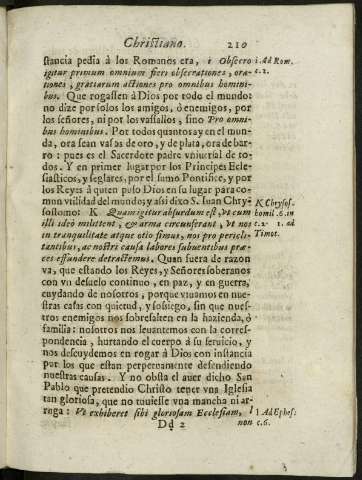 Christiano. 210
stancia pedia à los Romanos era, i Obsecro i. Ad Rom.
igitur primum omnium fieri obsecrationes, ora- c.2.
tiones, gratiarum actiones pro omnibus homini-
bus. Que rogassen à Dios por todo el mundo:
no dize por solos los amigos, ò enemigos, por
los señores, ni por los vassallos, sino Pro omni-
bus hominibus. Por todos quantos ay en el mun-
do, ora sean vasas de oro, y de plata, ora de bar-
ro: pues es el Sacerdote padre vniuersal de to-
dos. Y en primer lugar por los Principes Ecle-
siasticos, y seglares, por el sumo Pontifice, y por
los Reyes à quien puso Dios en su lugar para co-
mun vtilidad del mundo; y assi dixo S. Iuan Chry- K Chrysos-
sostomo: K Quam igitur absurdum est, vt cum homil. 6. in
illi ideò militent, & arma circunferant, vt nos c. 2. 1. ad
in tranquilitate atque otio simus, nos pro pericli- Timot.
tantibus, ac nostri causa labores subuentibus præ-
ces effundere detractemus. Quan fuera de razon
va, que estando los Reyes, y Señores soberanos
con vn desuelo continuo, en paz, y en guerra,
cuydando de nosotros, porque viuamos en nue-
stras casas con quietud, y sosiego, sin que nues-
tros enemigos nos sobresalten en la hazienda, ò
familia: nosotros nos leuantemos con la corres-
pondencia, hurtando el cuerpo à su seruicio, y
nos descuydemos en rogar à Dios con instancia
por los que estan perpetuamente defendiendo
nuestras causas. Y no obsta el auer dicho San
Pablo que pretendio Christo tener vna Iglesia
tan gloriosa, que no tuuiesse vna mancha ni ar-
roga: Vt exhiberet sibi gloriosam Ecclesiam, l Ad Ephes.
Dd 2 non c.6.